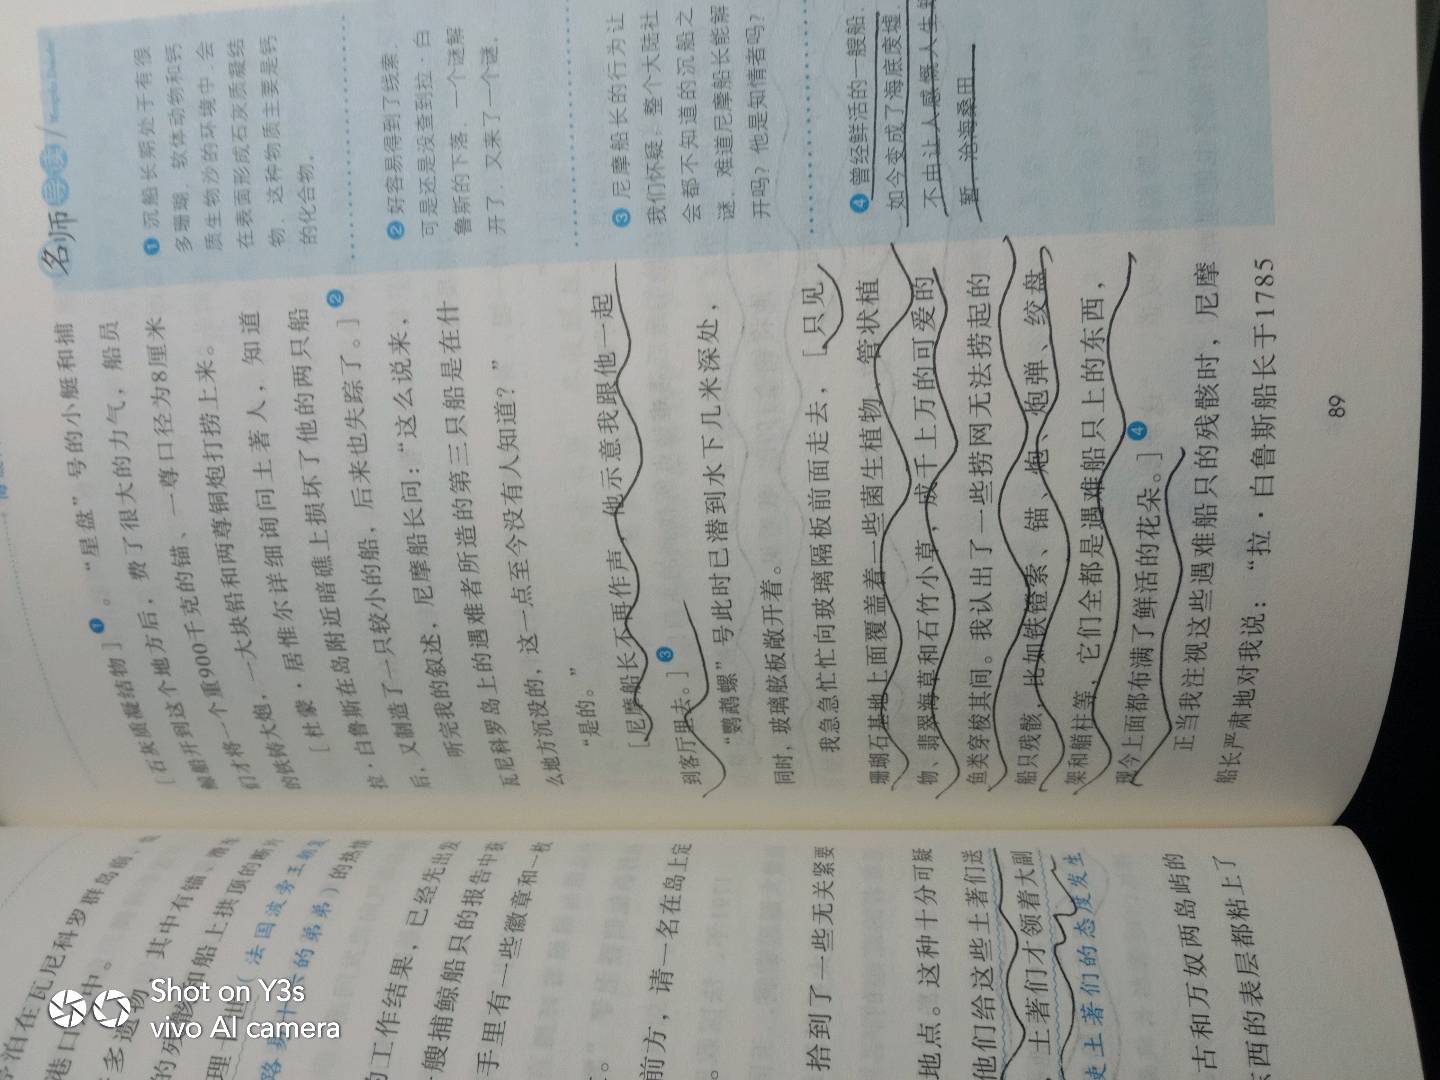 名师导读
[石灰质凝结物]①。“星盘”号的小艇和捕
鲸船开到这个地方后，费了很大的力气，船员
们才将一个重900千克的锚、一尊口径为8厘米
的铁铸大炮，一大块铅和两尊铜炮打捞上来。
[杜蒙·居惟尔详细询问土著人，知道
拉·白鲁斯在岛附近暗礁上损坏了他的两只船
后，又翻造了一只较小的船，后来也失踪了。]②
听完我的叙述，尼摩船长问：“这么说来，
瓦尼科罗岛上的遇难者所造的第三只船是在什
么地方沉没的，这一点至今没有人知道？”
“是的。”
[尼摩船长不再作声，他示意我跟他一起
到客厅里去。]③
“鹦鹉螺”号此时已潜到水下几米深处，
同时，玻璃舷板敞开着。
我急急忙忙向玻璃隔板前面走去，[只见
珊瑚石基地上面覆盖着一些菌生植物、管状植
物、翡翠海草和石竹小草，成千上万的可爱的
鱼类穿梭其间。我认出了一些捞网无法捞起的
船只残骸，比如铁镫索、锚、炮、炮弹、绞盘
架和艏柱等，它们全都是遇难船只上的东西，
现今上面都布满了鲜活的花朵。]④
正当我注视这些遇难船只的残骸时，尼摩
船长严肃地对我说：“拉·白鲁斯船长于1785
①沉船长期处于有很
多珊瑚、软体动物和钙
质生物沙的环境中，会
在表面形成石灰质凝结
物，这种物质主要是钙
的化合物。
②好容易得到了线索，
可是还是没查到拉·白
鲁斯的下落，一个谜解
开了，又来了一个谜。
③尼摩船长的行为让
我们怀疑，整个大陆社
会都不知道的沉船之
谜，难道尼摩船长能解
开吗？他是知情者吗？
④曾经鲜活的一艘船，
如今变成了海底废墟，
不由让人感慨人生
暂，沧海桑田。
89
泊在瓦尼科罗群岛
港口
的残骸和船上拱顶的断片
(法国波旁王朝
路易十六的弟弟)的热情
工作结果，已经先出发
艘捕鲸船只的报告中获
手里有一些徽章和一枚
前方，请一名在岛上定
拾到了一些无关紧要
地点。这种十分可疑
他们给这些土著们送
，土著们才领着大副
使土著们的态度发生
古和万奴两岛屿的
西的表层都粘上了
Shot on Y3s
vivo AI camera